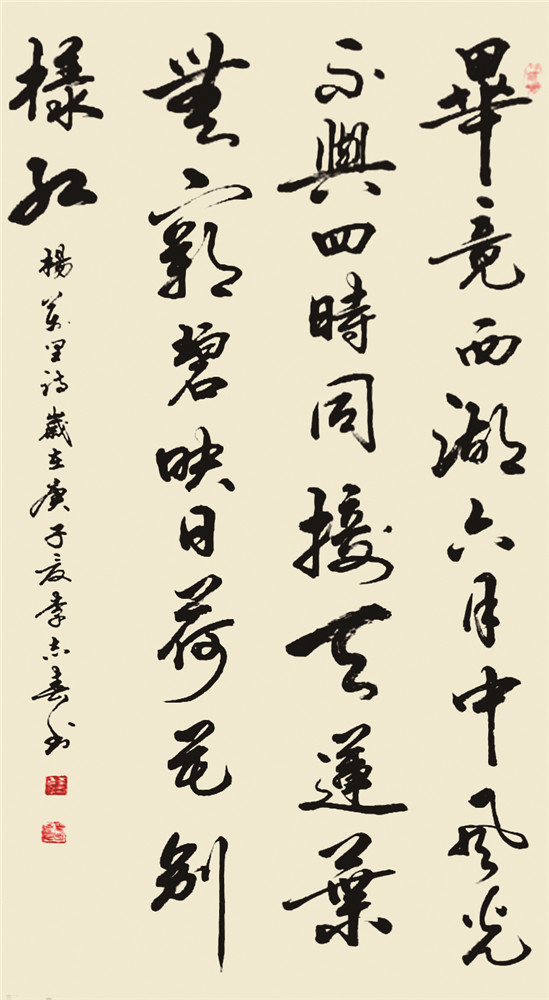 畢竟西湖六月中風光
不與四時同接天蓮葉
無窮碧映日荷花別
樣紅
楊萬里詩歲在庚子夏李志春書